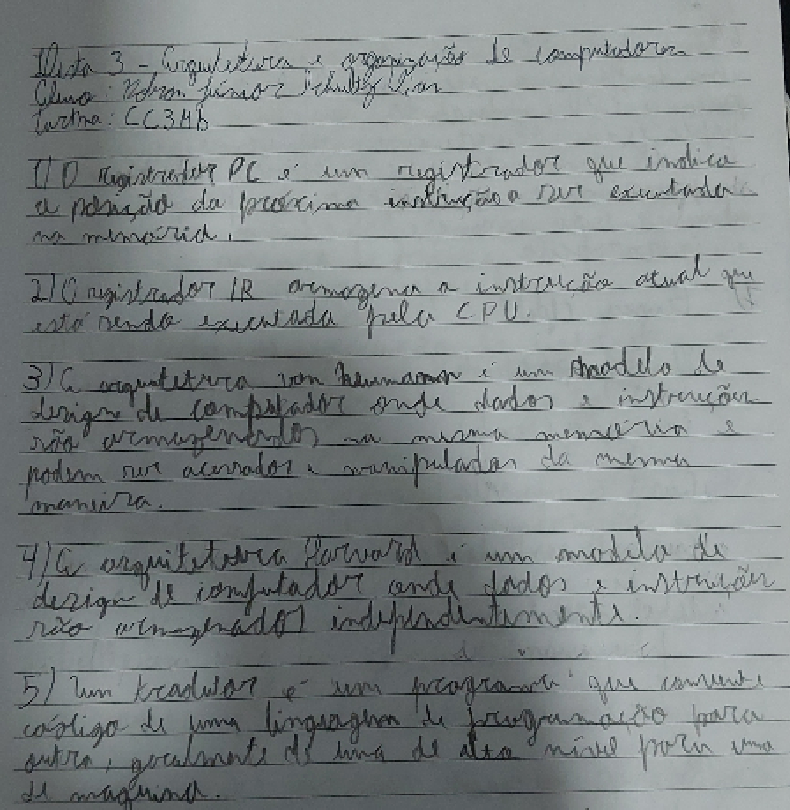 Lista 3 - Arquitetura e organização de computadores
Aluno: Júnior
Turma: CC3AB
1) O registrador PC é um registrador que indica
a posição da próxima instrução a ser executada
na memória.
2) O registrador IR armazena a instrução atual que
está sendo executada pela CPU.
3) A arquitetura von Neumann é um modelo de
design de computador onde dados e instruções
são armazenados na mesma memória e
podem ser acessados e manipulados da mesma
maneira.
4) A arquitetura Harvard é um modelo de
design de computador onde dados e instruções
são armazenados independentemente.
5) Um tradutor é um programa que converte
código de uma linguagem de programação para
outra, geralmente de uma de alto nível para uma
de maquina.